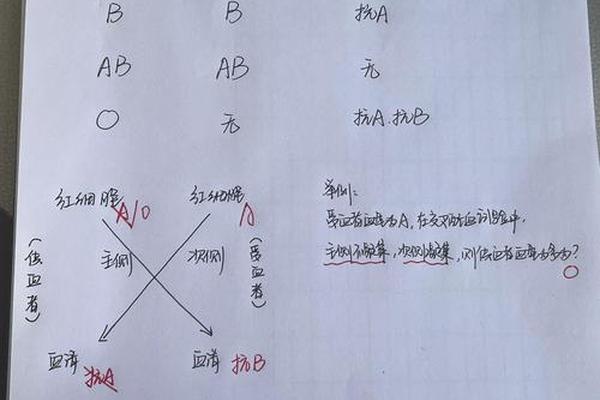 B B 抗A
AB AB 无
O 无 抗A.抗B
红细胞 A/O 红细胞 A
(供血者) 主侧 次侧 (受血者)
血清 抗A 血清 抗B
举例:
受血者血型为A,在交叉配血试验中,
主侧不凝集,次侧凝集,则供血者血型为多为?
O